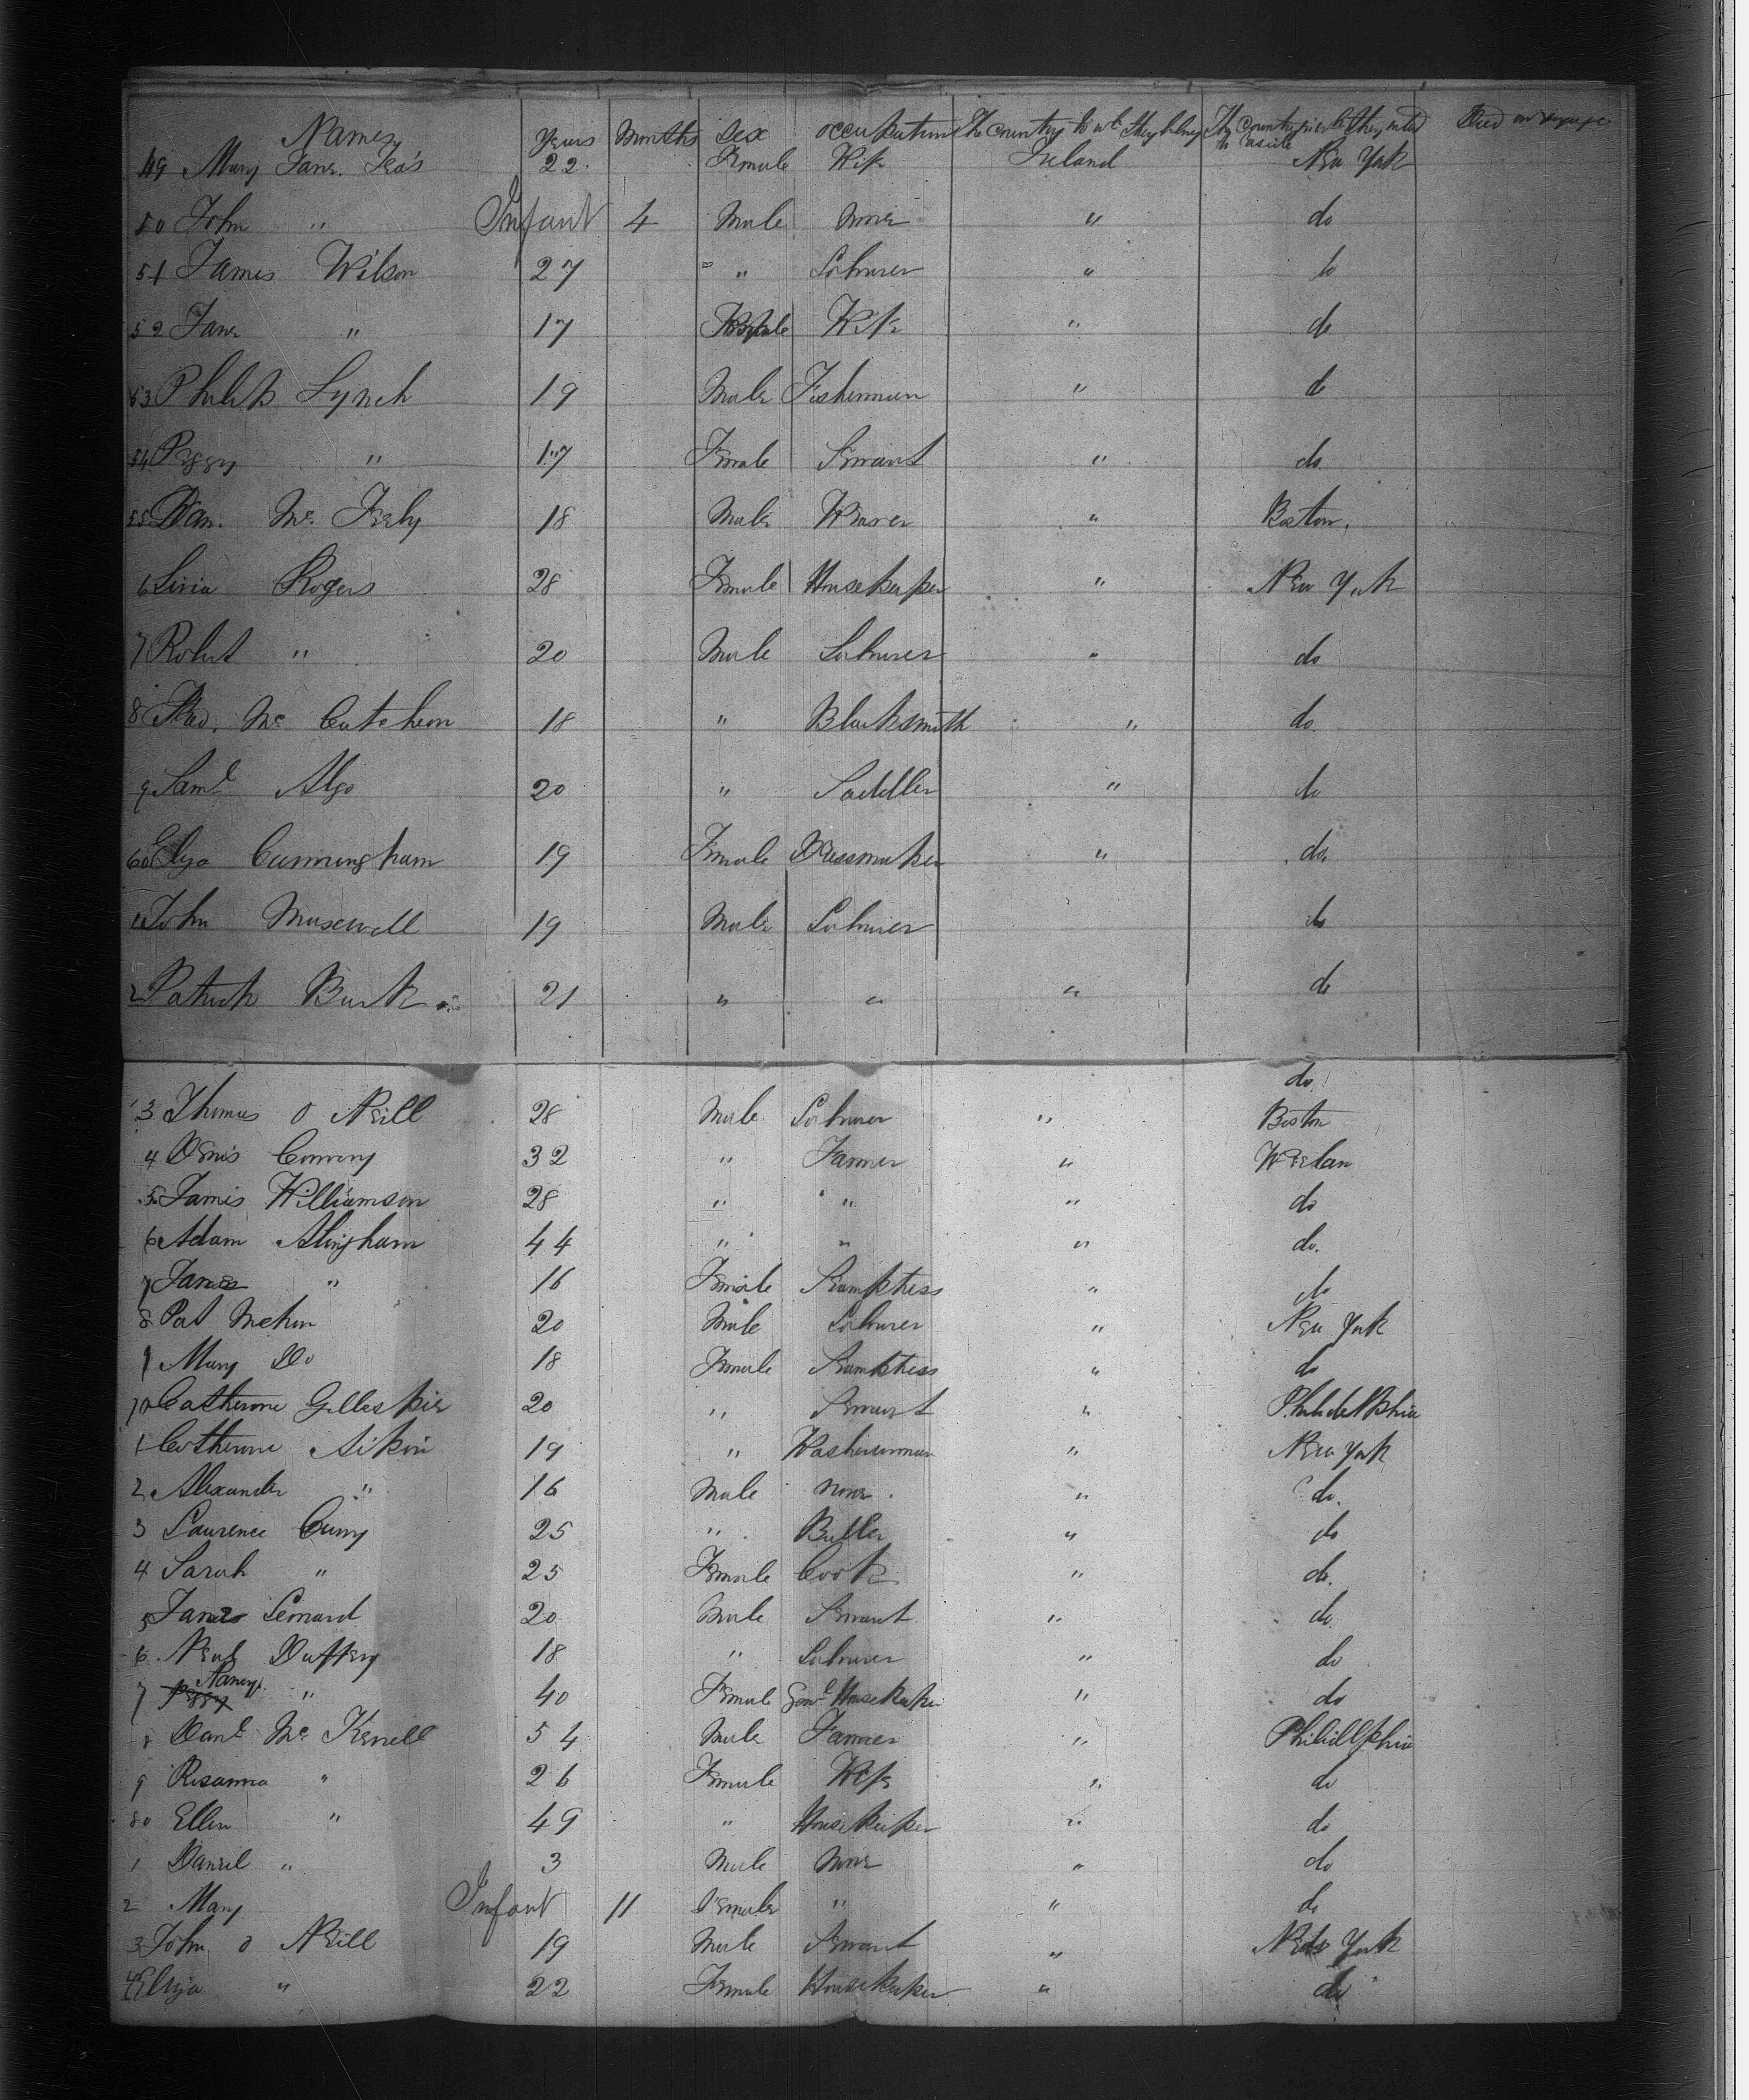 Names Years Months Sex occupation The country to wh they belong The country in wh they intend to reside Died on voyage
49 Mary Jane 22 Female Wife Ireland New York
50 John " Infant 4 Male None " do
51 James Wilson 27 " Labourer " do
52 Jane " 17 Female Wife " do
53 Philip Lynch 19 Male Fisherman " do
54 Peggy " 17 Female Servant " do
55 Dan. Mc Feely 18 Male Weaver " Boston.
6 Rogers 28 Female Housekeeper " New York
7 Robert " 20 Male Labourer " do
8 Mc Cutcheon 18 " Blacksmith " do
9 Saml Algo 20 " Saddller " do
60 Eliza Cunningham 19 Female Dressmaker " do
1 John Musewell 19 Male Labourer " do
2 Patrick Burk 21 " " " do
do.
3 Thomas O Neill 28 Male Labourer " Boston
4 Denis 32 " Farmer "
5 James Williamson 28 " " " do
6 Adam Alingham 44 " " " do.
7 Jane " 16 Female Seamptress " do
8 Pat 20 Male Labourer " New York
9 Mary Do 18 Female Seamptress " do
70 Catherine Gillespie 20 " Servant " Philidelphia
1 Catherine Aikin 19 " Washerwoman " New York
2 Alexander " 16 Male None " do.
3 Laurence Curry 25 " Butler " do
4 Sarah " 25 Female Cook " do.
5 James Lenard 20 Male Servant " do.
6 Neal Duffery 18 " Labourer " do
7 Peggy Nancy " 40 Female Genl Housekeeker " do
8 Danl Mc 54 Male Farmer " Philidllphia
9 Rosanna " 26 Female Wife " do
80 Ellen " 49 " Housekeeper " do
1 Daniel " 3 Male None " do
2 Mary Infant 11 Female " " do
3 John O Neill 19 Male Servant " New York
4 Eliza " 22 Female Housekeeper " do